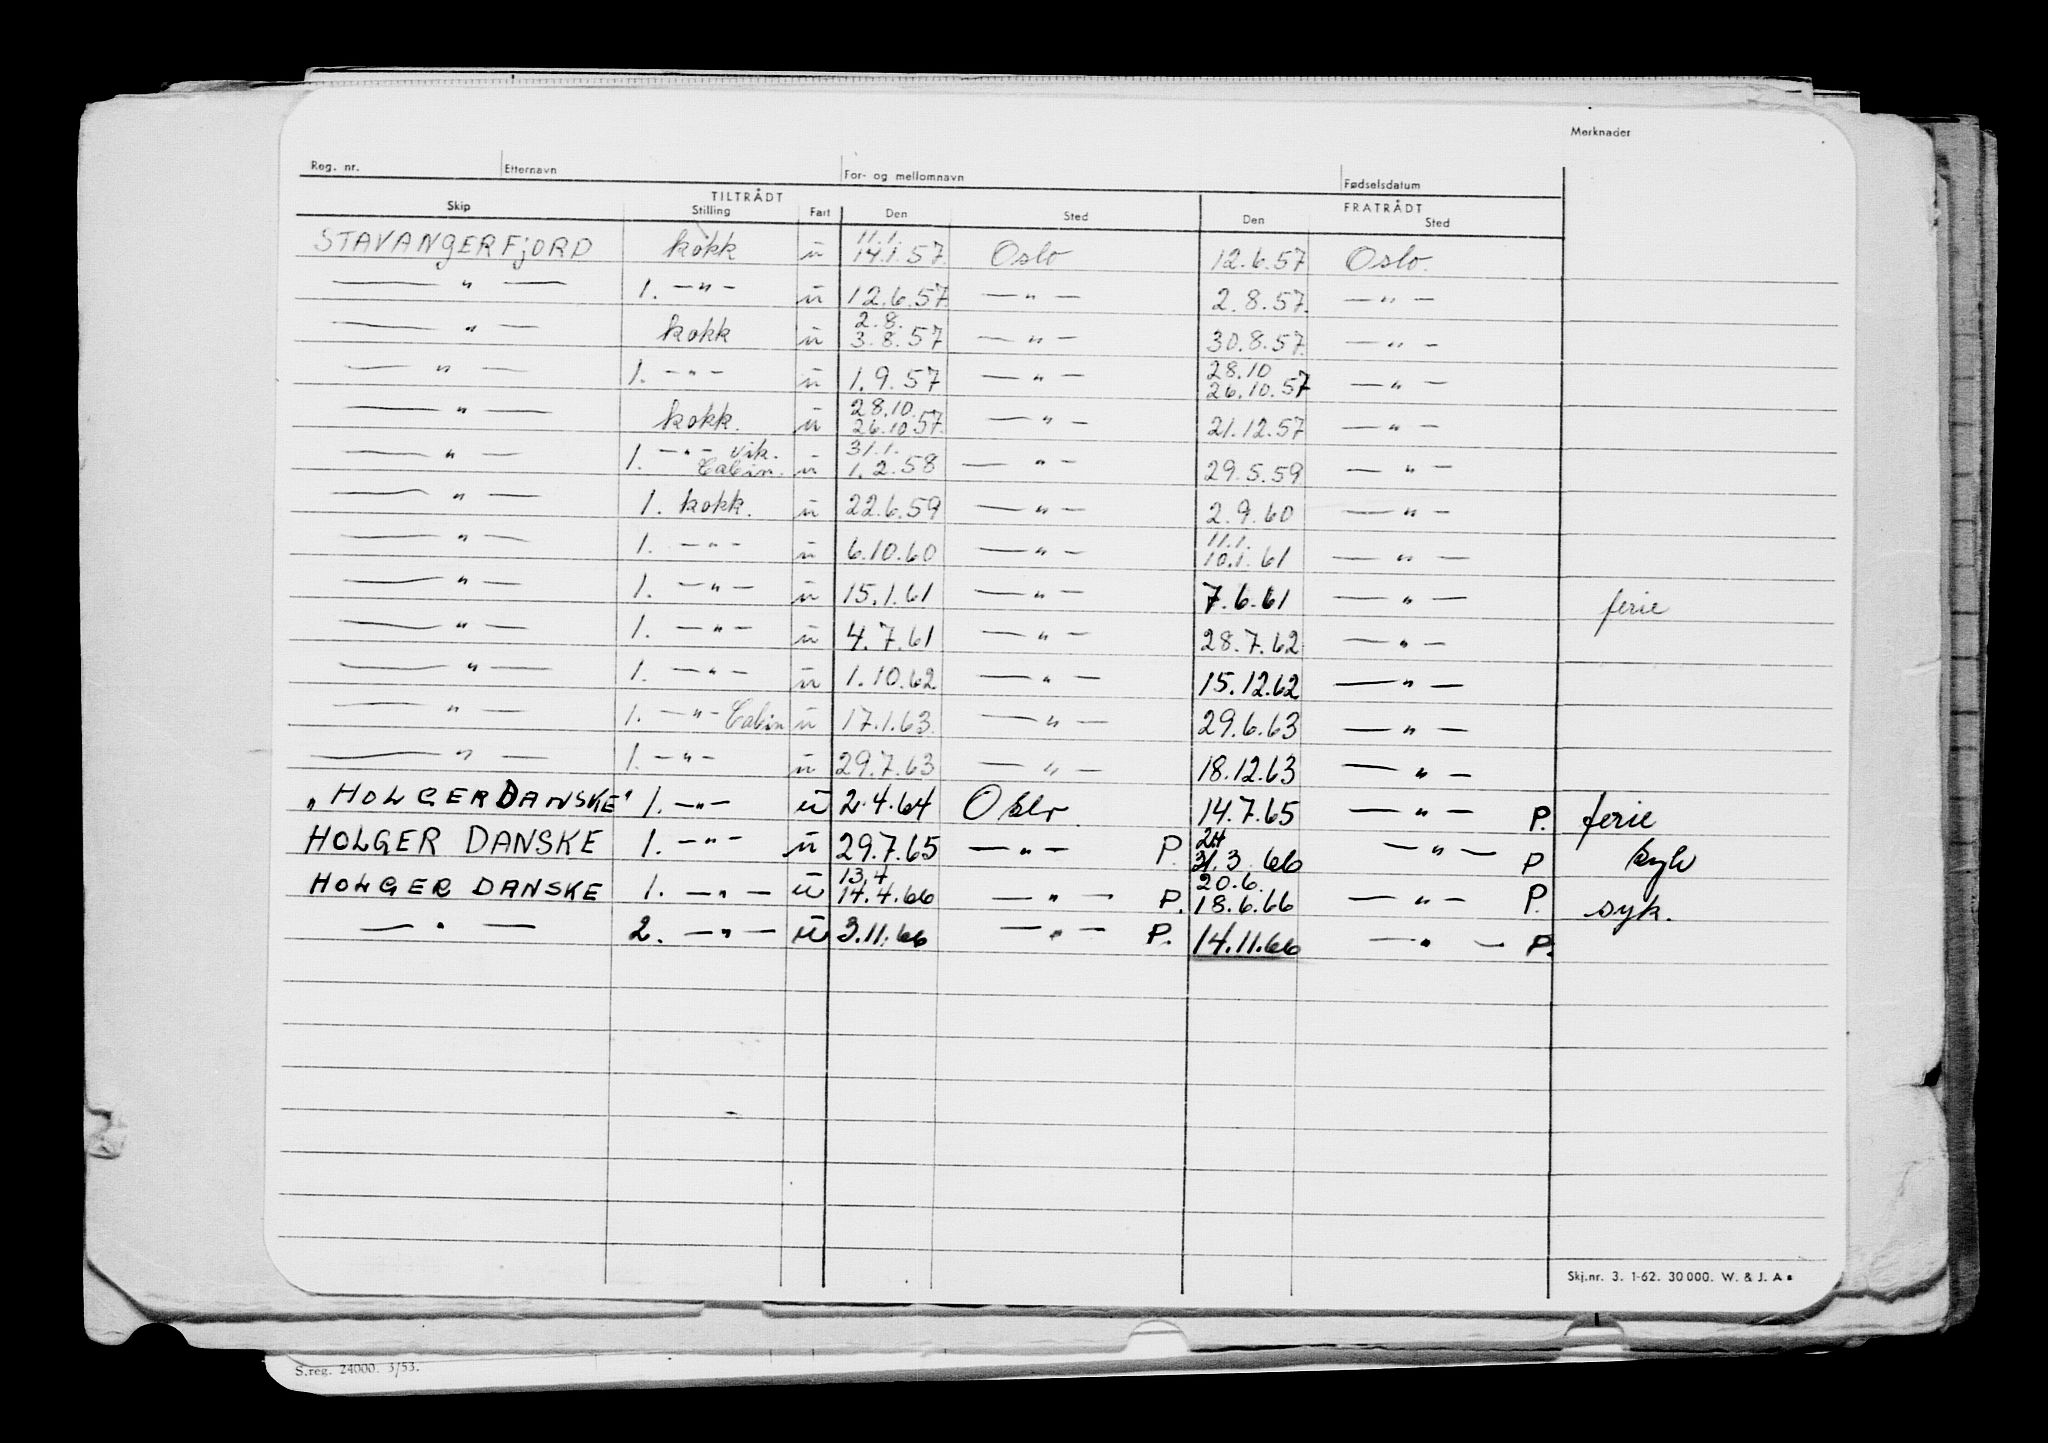 Merknader
Reg. nr. Etternavn For- og mellomnavn Fødselsdatum
TILTRÅDT FRATRÅDT
Skip Stilling Fart Den Sted Den Sted
STAVANGERFJORD kokk ū 11.1. 14.1.57. Oslo 12.6.57 Oslo.
— " — 1. — " — ū 12.6.57 — " — 2.8.57. — " —
— " — kokk ū 2.8. 3.8.57 — " — 30.8.57. — " —
— " — 1. — " — ū 1.9.57 — " — 28.10 26.10.57 — " —
— " — kokk. ū 28.10. 26.10.57. — " — 21.12.57 — " —
— " — 1. — " — vik. Cabin. ū 31.1. 1.2.58 — " — 29.5.59 — " —
— " — 1. kokk. ū 22.6.59 — " — 2.9.60 — " —
— " — 1. — " — ū 6.10.60 — " — 11.1. 10.1.61 — " —
— " — 1. — " — ū 15.1.61 — " — 7.6.61 — " — ferie
— " — 1. — " — ū 4.7.61 — " — 28.7.62 — " —
— " — 1. — " — ū 1.10.62 — " — 15.12.62 — " —
— " — 1. — " — Cabin ū 17.1.63. — " — 29.6.63 — " —
— " — 1. — " — ū 29.7.63 — " — 18.12.63 — " —
"HOLGER DANSKE" 1. — " — ū 2.4.64 Oslo. 14.7.65 — " — P. ferie
HOLGER DANSKE 1. — " — ū 29.7.65 — " — P. 24 31.3.66 — " — P syk
HOLGER DANSKE 1. — " — ū 13.4 14.4.66 — " — P. 20.6. 18.6.66 — " — P. syk.
— " — 2. — " — ū 3.11.66 — " — P. 14.11.66 — " — P.
Skj.nr. 3. 1-62. 30 000. W. & J. A
S.reg. 24000. 3/53.